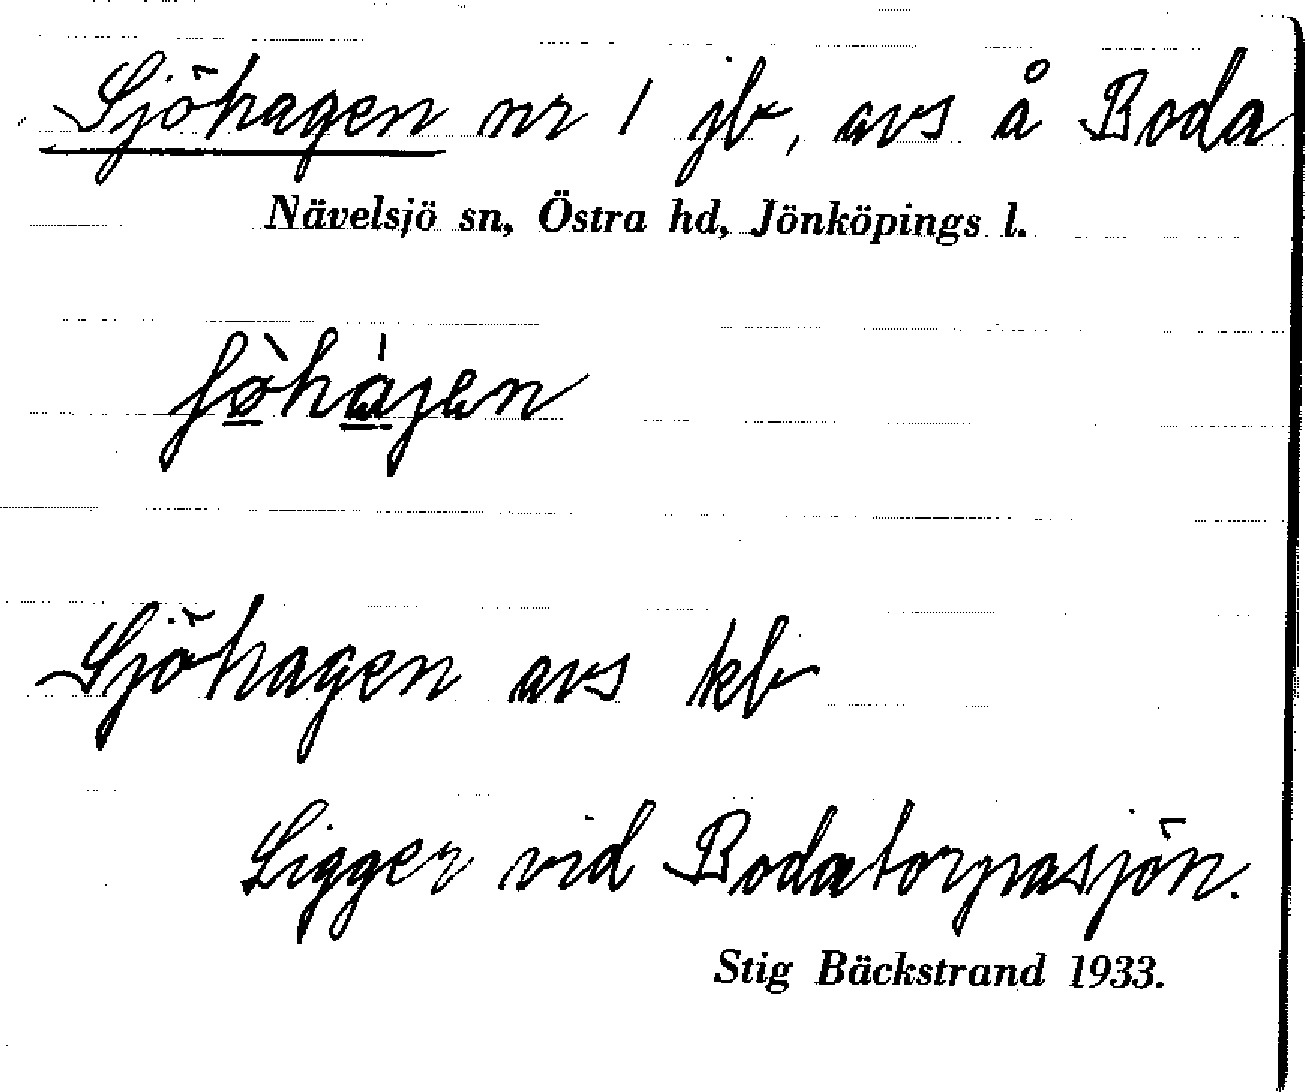 Sjöhagen nr 1 jb, avs å Boda
Nävelsjö sn, Östra hd, Jönköpings l.
Sjöhagen avs kb
Ligger vid Bodatorpasjön.
Stig Bäckstrand 1933.